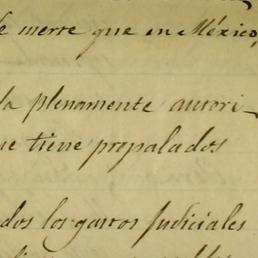 de merre que en México,
da plenamente autori-
ue tiene propalados
dos los gastos Judiciales